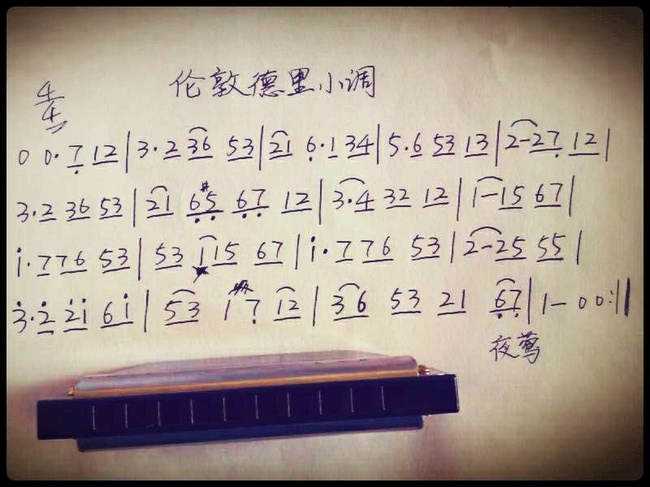 伦敦德里小调
4/4
0 0·7 12|3·2 36 53|21 6·1 34|5·6 53 13|2-27 12|
3·2 36 53|21 6#5 67 12|3·4 32 12|1-15 67|
i·776 53|53 115 67|i·776 53|2-25 55|
3·2 2i 6i|53 17 12|36 53 21 67|1-00:||
夜莺